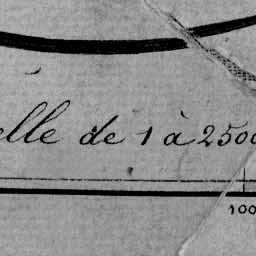 elle de 1 à 2500
100